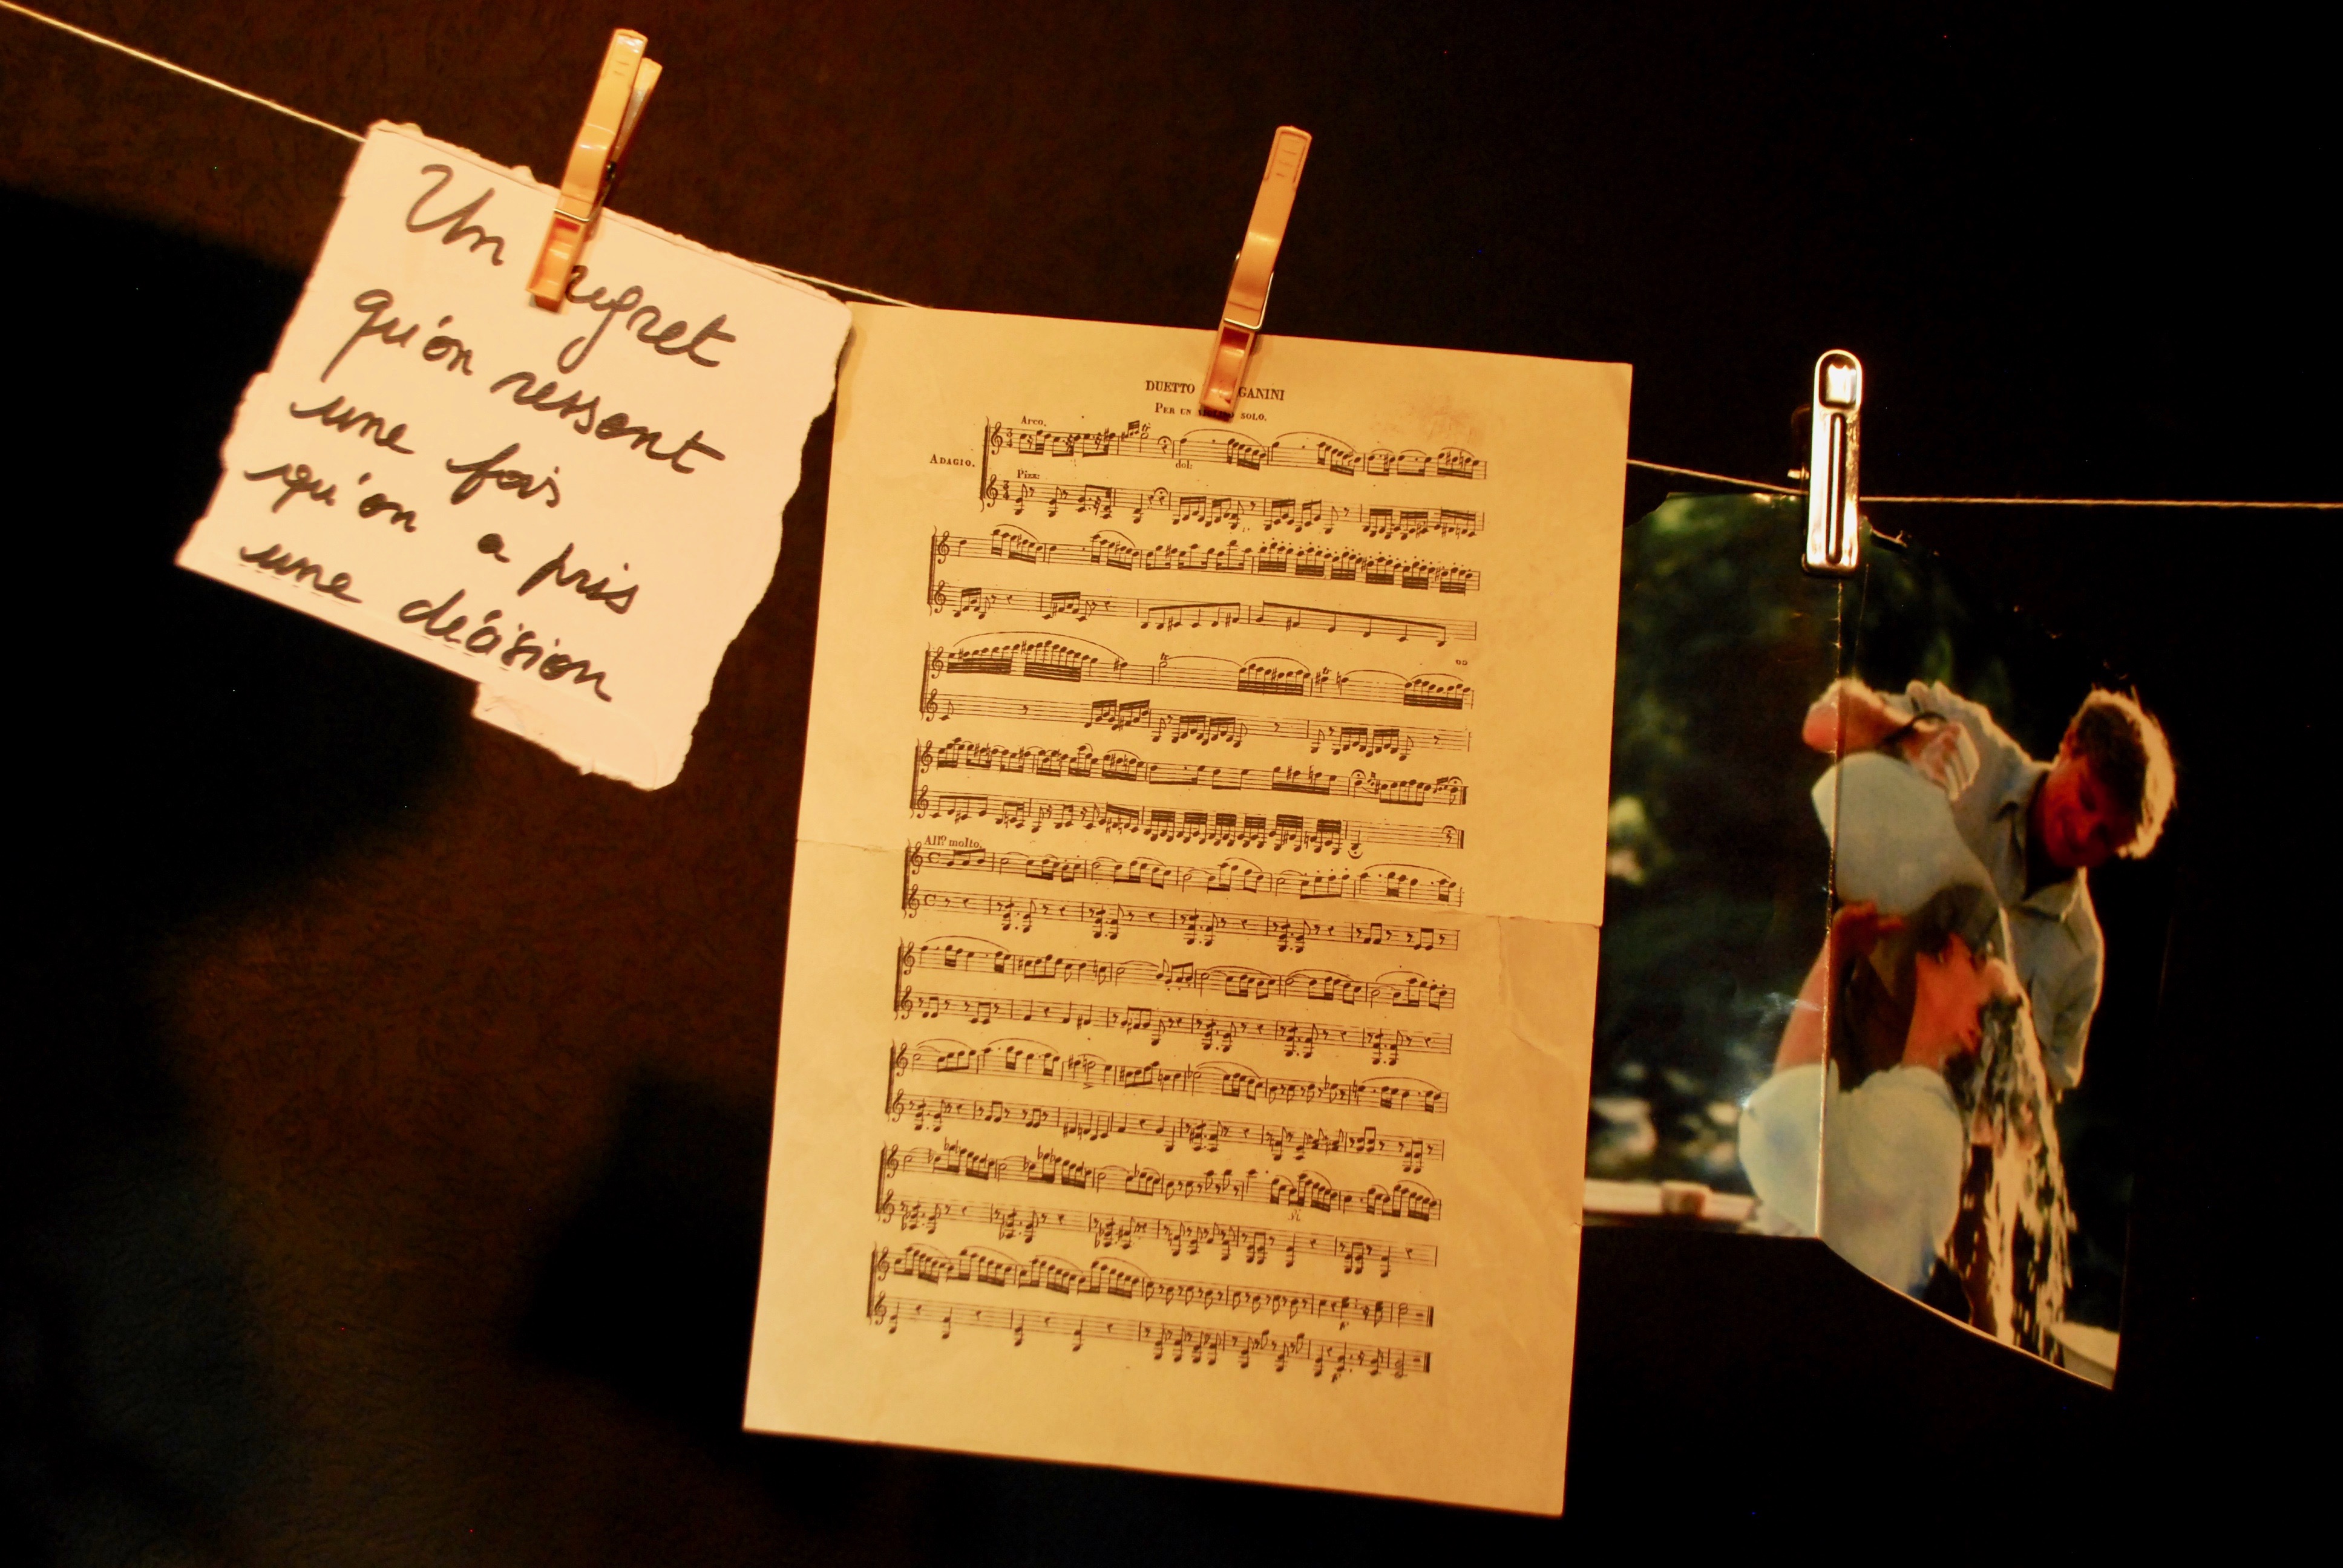 Un regret
qu'on ressent
une fois
qu'on a pris
une décision
DUETTO GANINI
PER UN SOLO.
Arco.
ADAGIO.
dol:
Pizz:
All.º molto.